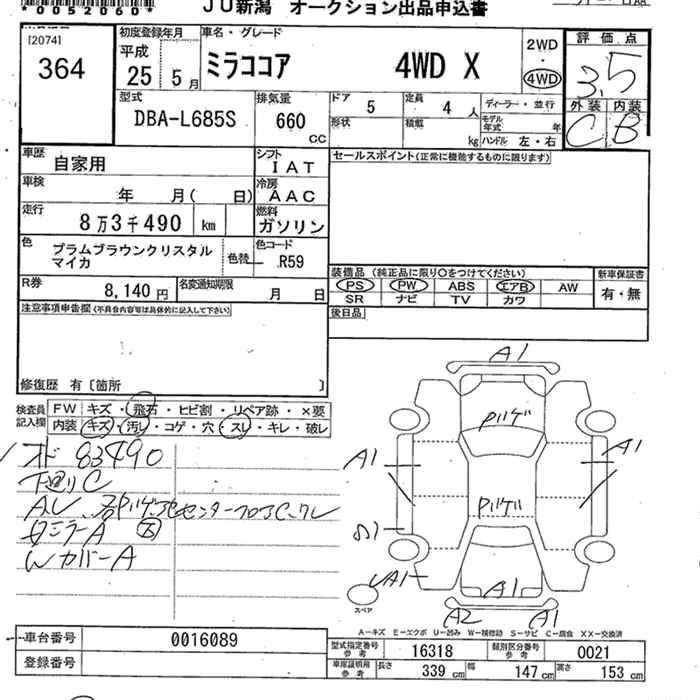 *0052060*
JU新潟 オークション出品申込書
[20741
364
初度登録年月
平成
25 5月
車名・グレード
ミラココア 4WD X
2WD
・
4WD
評価点
3.5
外装 内装
C B
型式
DBA-L685S
排気量
660
CC
ドア 5
定員 4 人
ディーラー・並行
形状
積載 kg
モデル年式 年
ハンドル 左・右
車歴
自家用
シフト
IAT
セールスポイント(正常に機能するものに限ります)
車検
年 月( 日)
冷房
AAC
走行
8万3千490 km
燃料
ガソリン
色
プラムブラウンクリスタル
マイカ
色替
色コード
R59
装備品(純正品に限り○をつけてください)
新車保証書
PS PW ABS エアB AW
有・無
SR ナビ TV カワ
R券
8,140円
名変通知期限
月 日
後日品
注意事項申告欄(不具合内容等は具体的に記入して下さい)
修復歴 有〔箇所 〕
検査員
記入欄
FW キズ・飛石・ヒビ割・リペア跡・×要
内装 キズ・汚レ・コゲ・穴・スレ・キレ・破レ
オド 83490
下廻りC
WカバーA
A1
パゲ
A1
A1
パゲ
A1
A1
A2 A1
スペア
A-キズ E-エクボ U-凹み W-補修跡 S-サビ C-腐食 XX-交換済
車台番号
0016089
登録番号
型式指定番号
参考
16318
類別区分番号
参考
0021
車庫証明用
参考
長さ 339 cm
幅 147 cm
高さ 153 cm